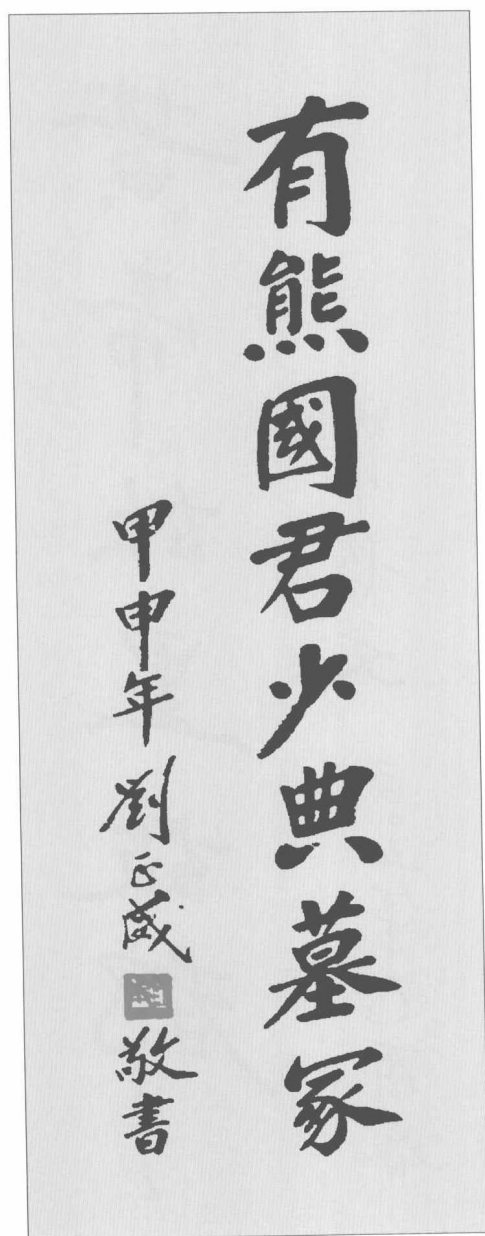 有熊國君少典墓冢
甲申年劉正威敬書